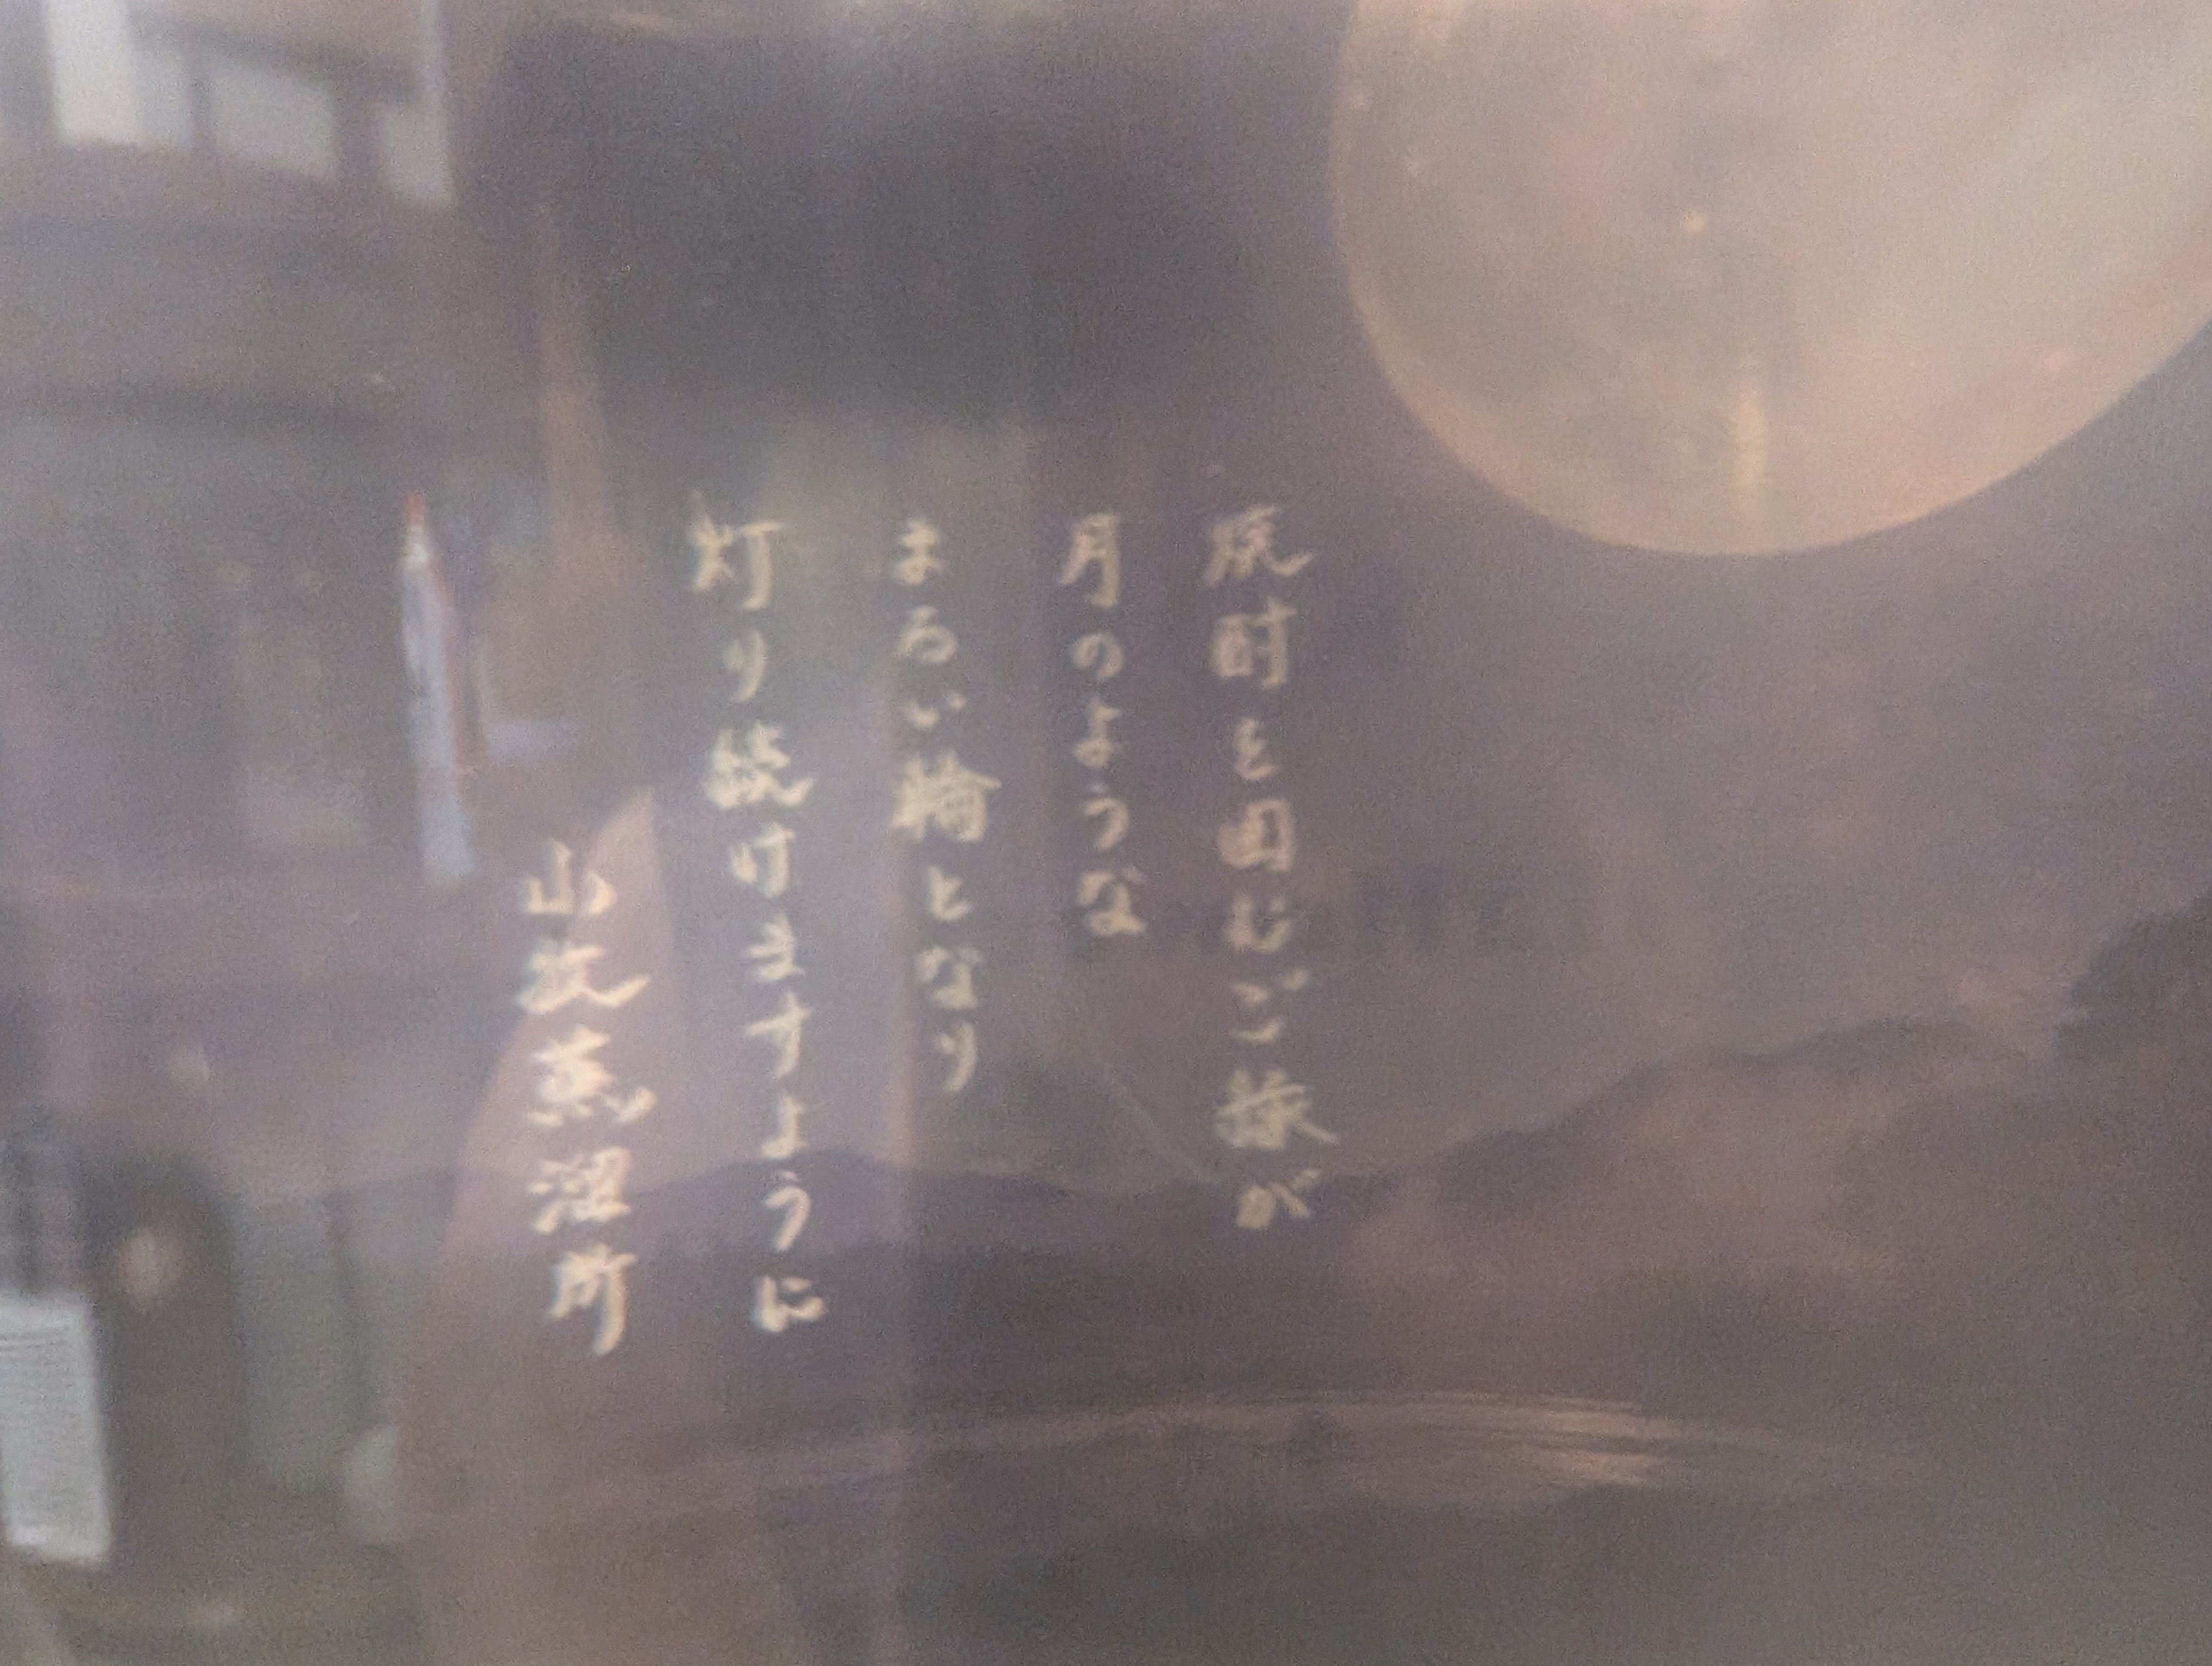 風酎を囲むご縁が
月のような
まろい輪となり
灯り続けますように
山牧蒸溜所